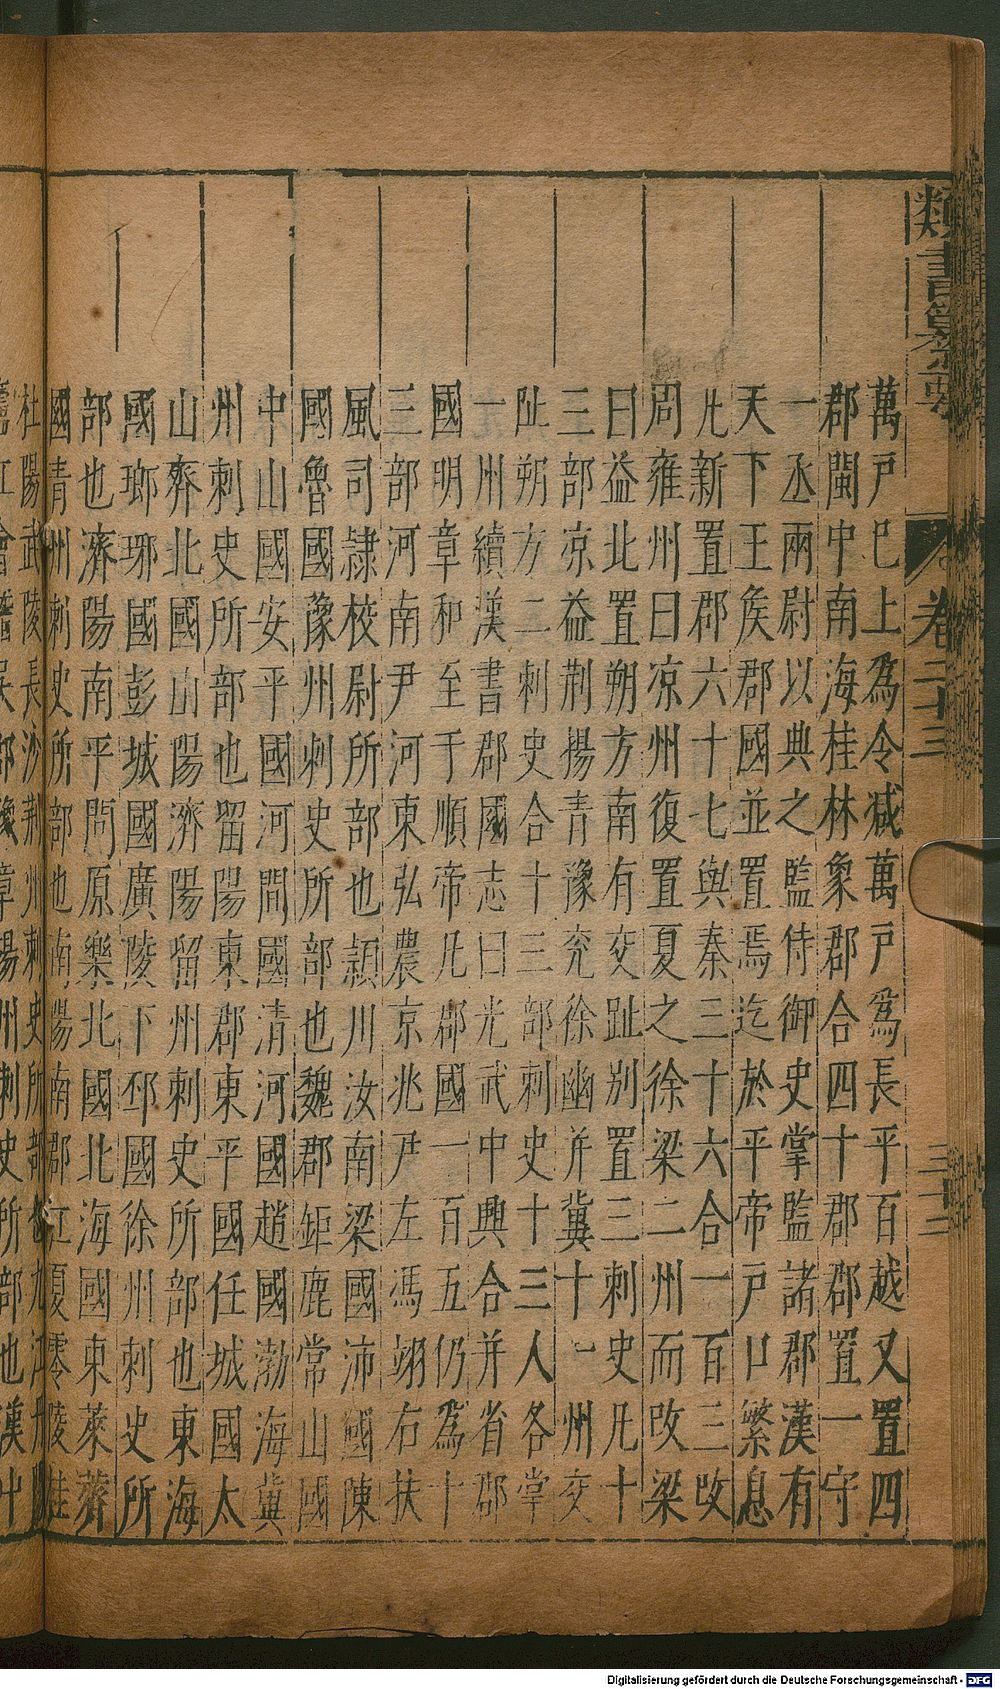 類書纂要
卷二十三
三十二
萬戶已上爲令减萬戶爲長平百越又置四
郡閩中南海桂林象郡合四十郡郡置一守
一丞兩尉以典之監侍御史掌監諸郡漢有
天下王矦郡國並置焉迄於平帝戶口繁息
凡新置郡六十七與秦三十六合一百三改
周雍州曰凉州復置夏之徐梁二州而改梁
曰益北置朔方南有交趾別置三刺史凡十
三部凉益荆揚青豫兖徐幽并冀十一州交
趾朔方二刺史合十三部刺史十三人各掌
一州續漢書郡國志曰光武中興合并省郡
國明章和至于順帝凡郡國一百五仍爲十
三部河南尹河東弘農京兆尹左馮翊右扶
風司隷校尉所部也潁川汝南梁國沛國陳
國魯國豫州刺史所部也魏郡鉅鹿常山國
中山國安平國河間國清河國趙國渤海冀
州刺史所部也留陽東郡東平國任城國太
山齊北國山陽濟陽留州刺史所部也東海
國瑯琊國彭城國廣陵下邳國徐州刺史所
部也濟陽南平問原樂北國北海國東萊齊
國青州刺史所部也南陽南郡江夏零陵桂
杜陽武陵長沙荆州刺史所部也九江丹陽
廬江會稽吳郡豫章揚州刺史所部也漢中
Digitalisierung gefördert durch die Deutsche Forschungsgemeinschaft - DFG